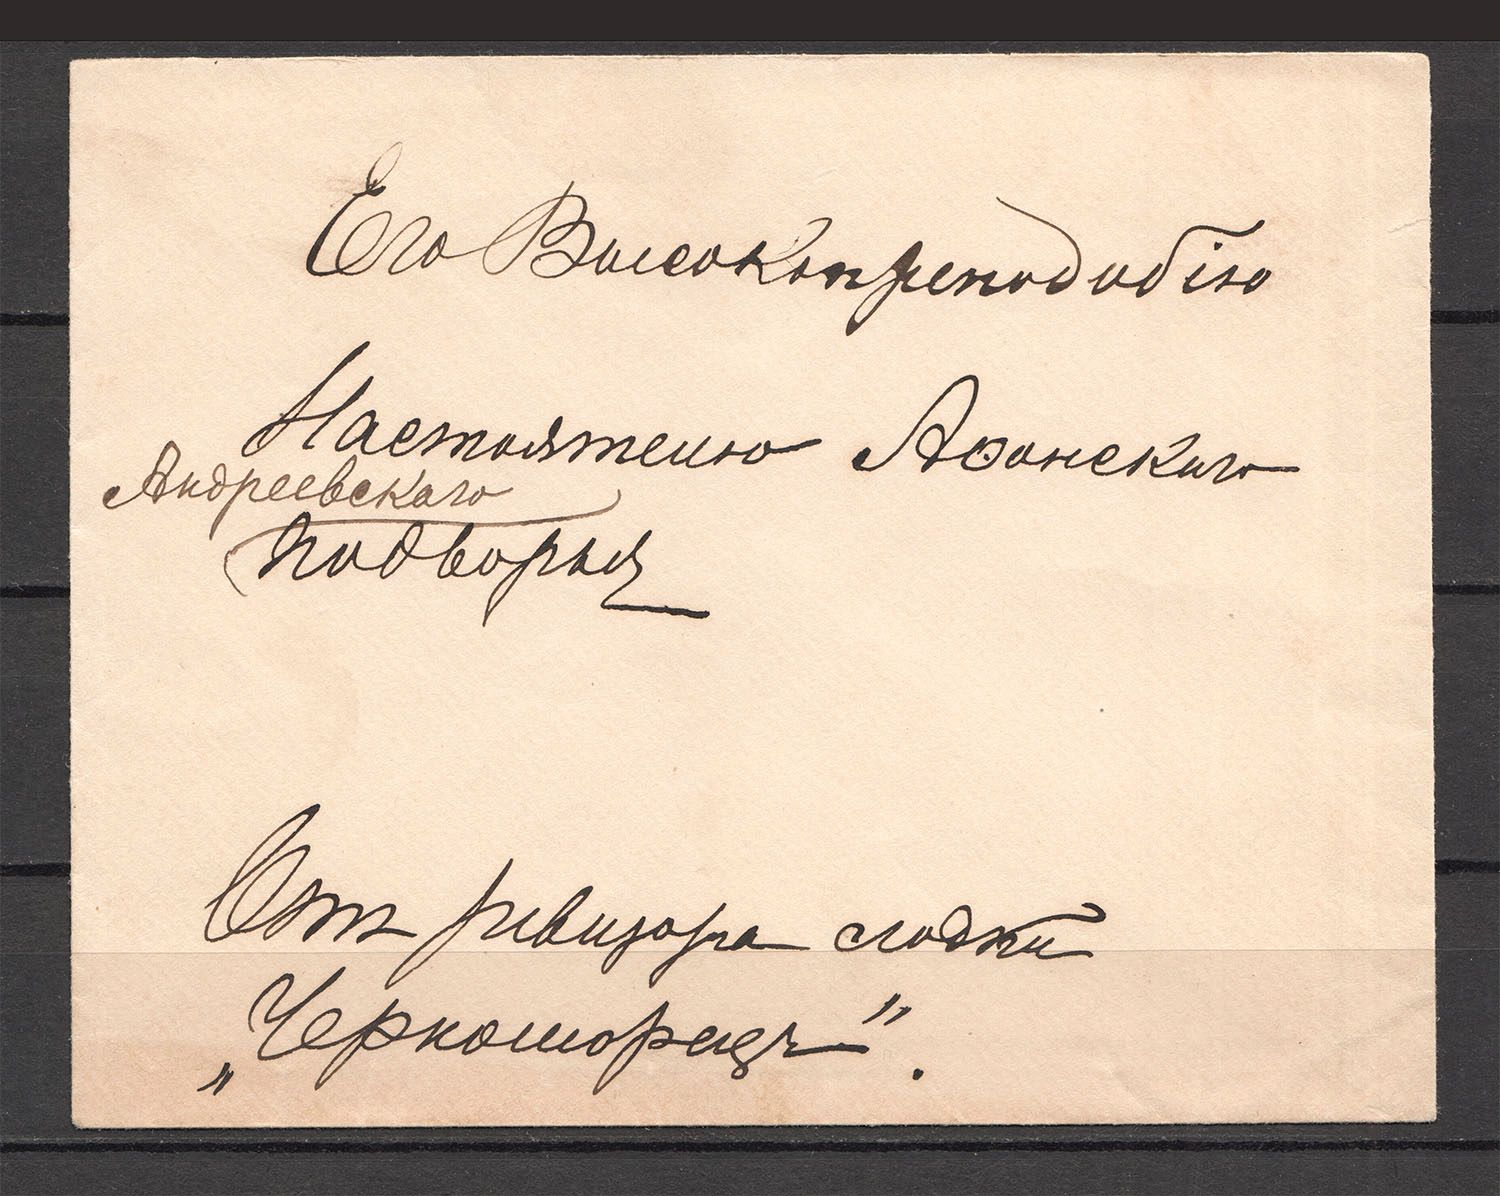 Его Высокопреподобію
Настоятелю Аѳонскаго
Андреевскаго
подворья
Отъ ревизора лодки
„Черноморецъ".